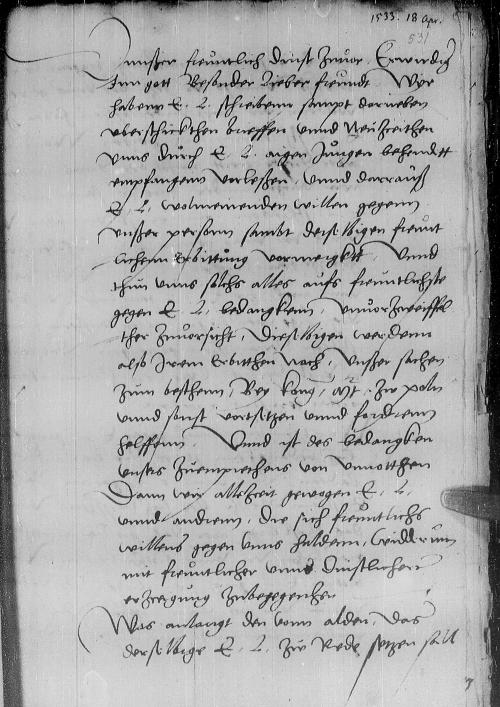 1533. 18 Apr.
531
Unnser freuntlich dinst zuuor. Erwirdig
Inn gott Besonder Lieber freundt. Wyr
habenn E. L. schreibenn sampt darneben
vberschickthen brieffen vnnd Neutzeithen
vnns durch E. L. aigen Jungen behendett
empfangenn vorlesen, vnnd darrauß
E. L. wolmeinenden willen gegenn
vnßer personn sambt derselbigen freunt
lichenn Erbittung vormergkt. Vnnd
thun vnns solchs alles aufs freuntlichste
gegen E. L. bedangkenn, vnuorzweiffel
ther zuuorsicht, Dieselbigen werdenn
also Irem Erbitthen nach, Vnßer sachen
zum besthenn, Bey kong. Mt. zw poln
vnnd sonst vortsetzen vnnd fordernn
helffenn. Vnnd ist des bedangken
vnsers zuemprechens von vnnotthen
Dann wir allezeit gewogen E. L.
vnnd andrenn, die sich freuntlichs
willens gegen vnns haldenn, widdrumb
mit freuntlicher vnnd dinstlicher
erzeigung zubegegenhen
Was anlangt den vonn alden, das
derselbige E. L. zw Rede setzen soll